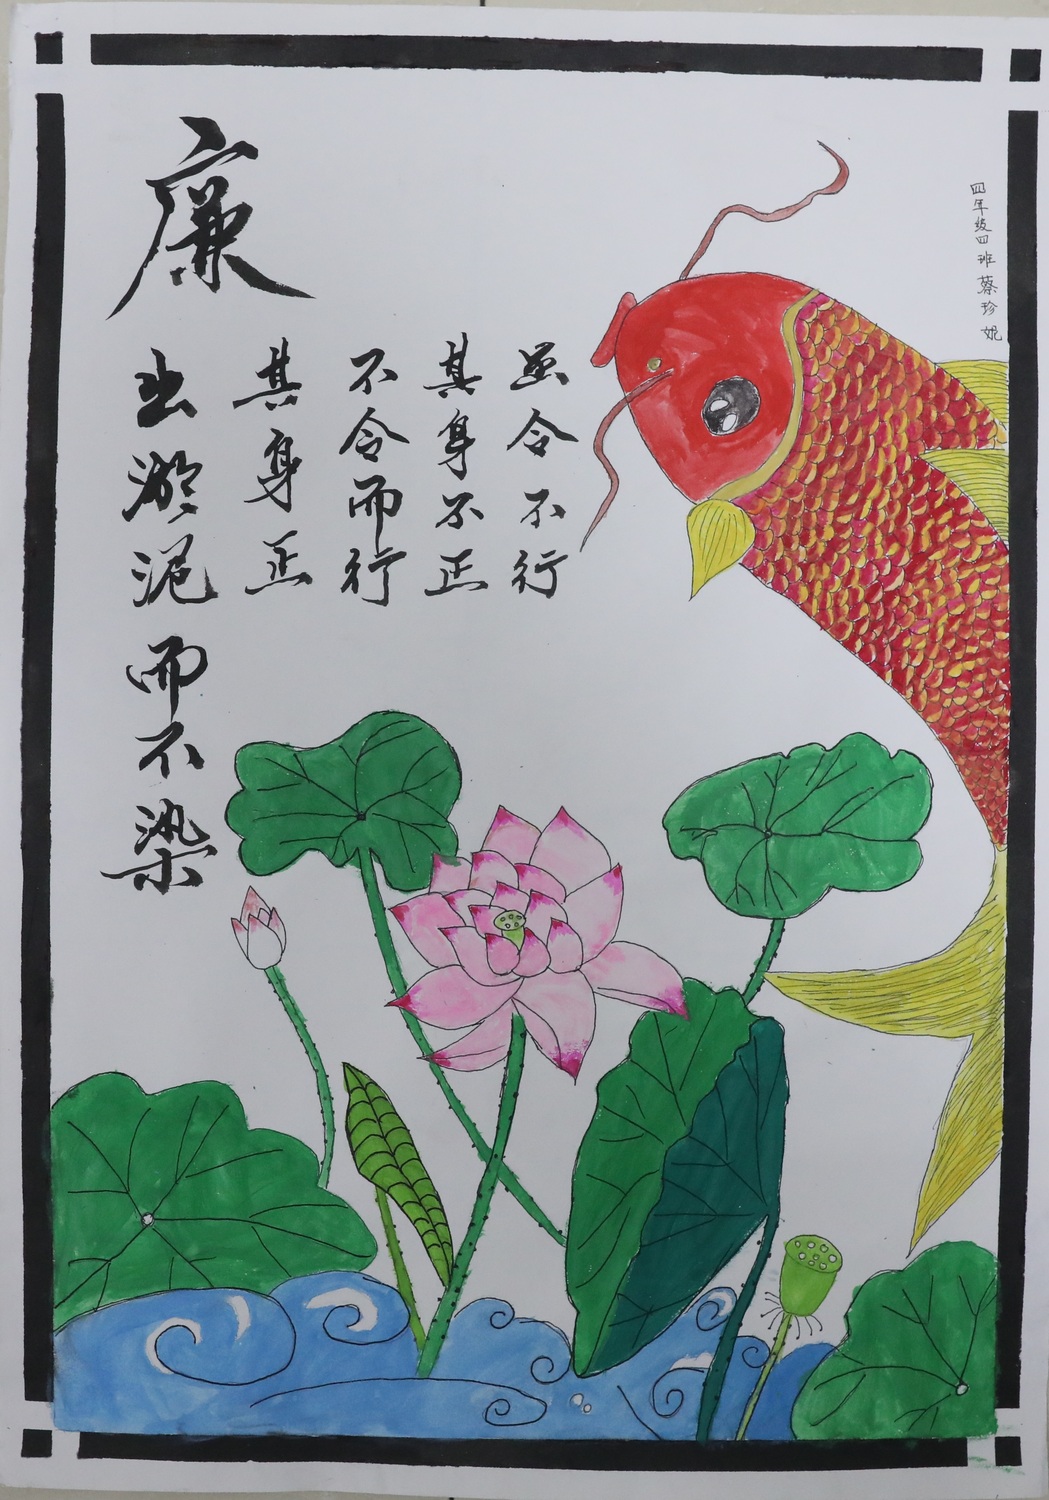 廉
出淤泥而不染
其身正
不令而行
其身不正
虽令不行
四年级四班蔡珍妮